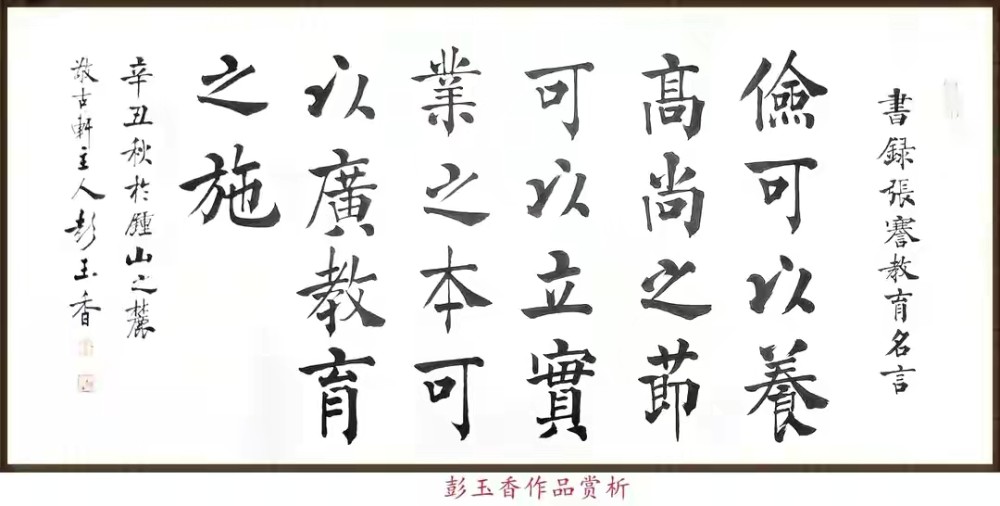 書録張謇教育名言
儉可以養
高尚之節
可以立實
業之本可
以廣教育
之施
辛丑秋於鍾山之麓
敬古軒主人彭玉香
彭玉香作品赏析